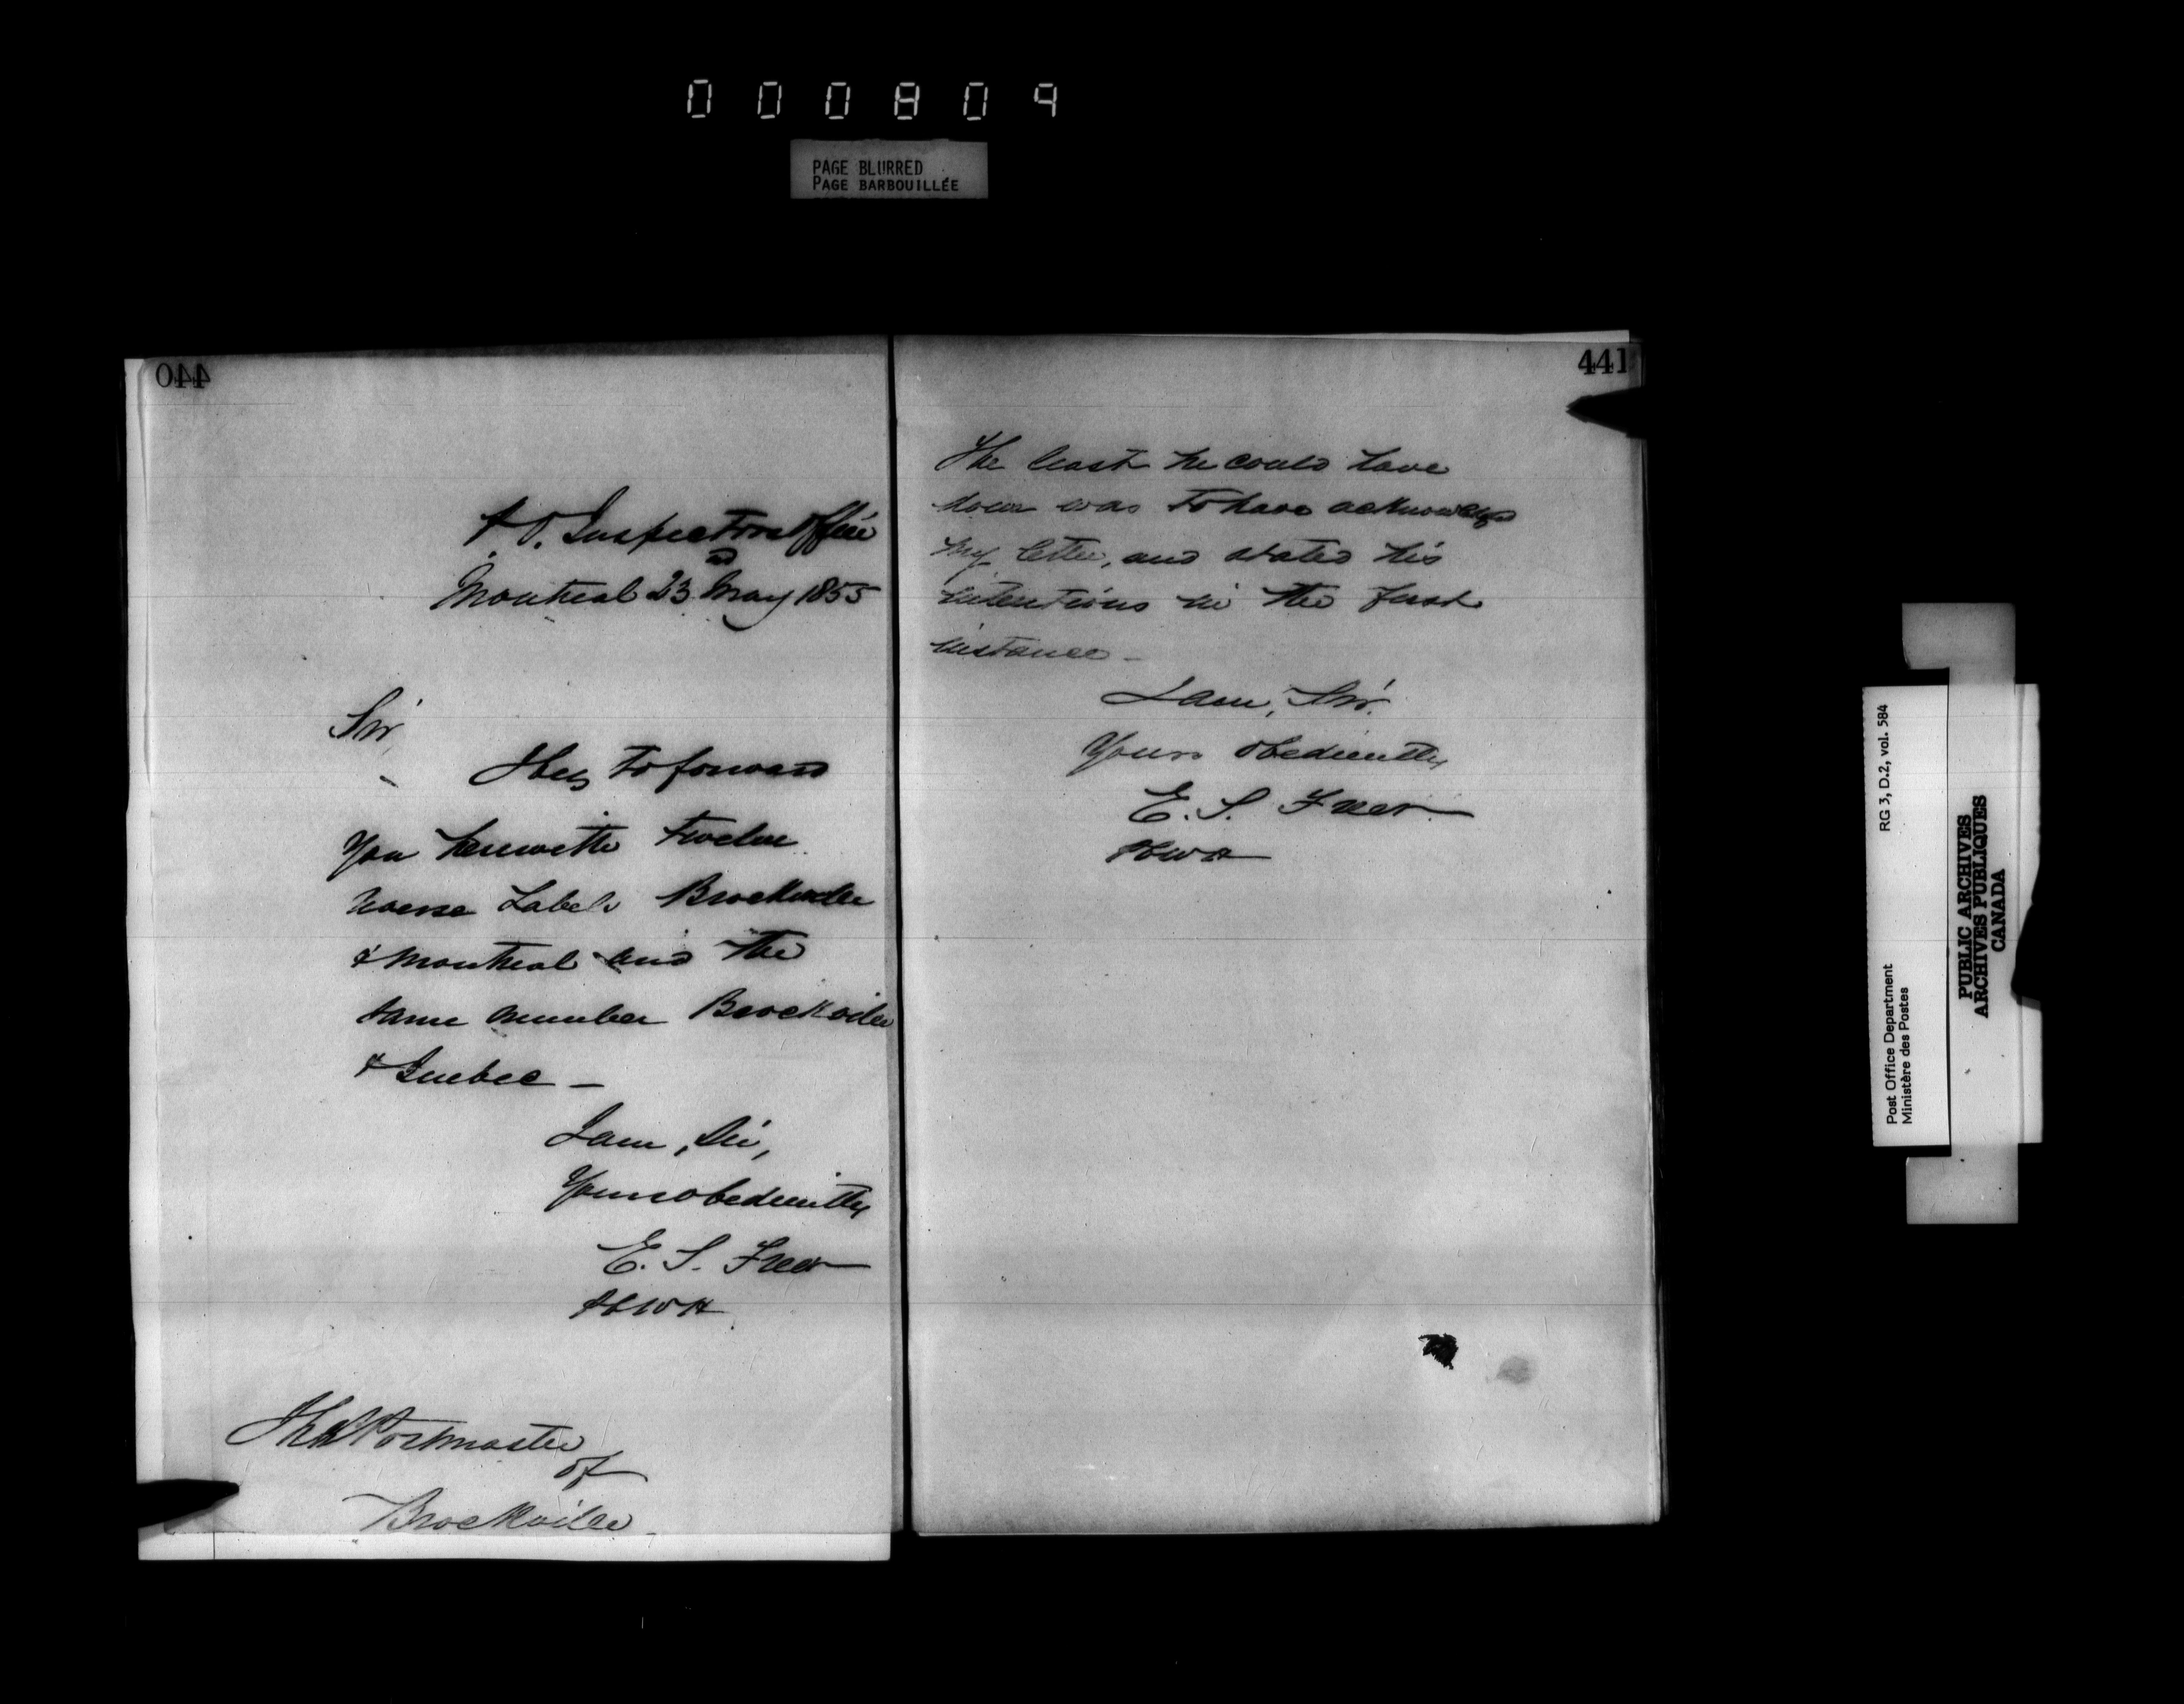 000809
PAGE BLURRED
PAGE BARBOUILLÉE
440
P. O. Inspectors Office
Montreal 23rd May 1855
Sir,
I beg to forward
You herewith Twelve
Labels Brockville
& Montreal and the
same number Brockville
& Quebec –
I am, Sir,
Yours obediently
E. S. Freer
The Postmaster
of
Brockville
441
The least he could have
done was to have acknowledged
my letter, and stated his
intentions in the first
instance –
I am, Sir,
Yours obediently
E. S. Freer
Post Office Department
Ministère des Postes
RG 3, D.2, vol. 584
PUBLIC ARCHIVES
ARCHIVES PUBLIQUES
CANADA